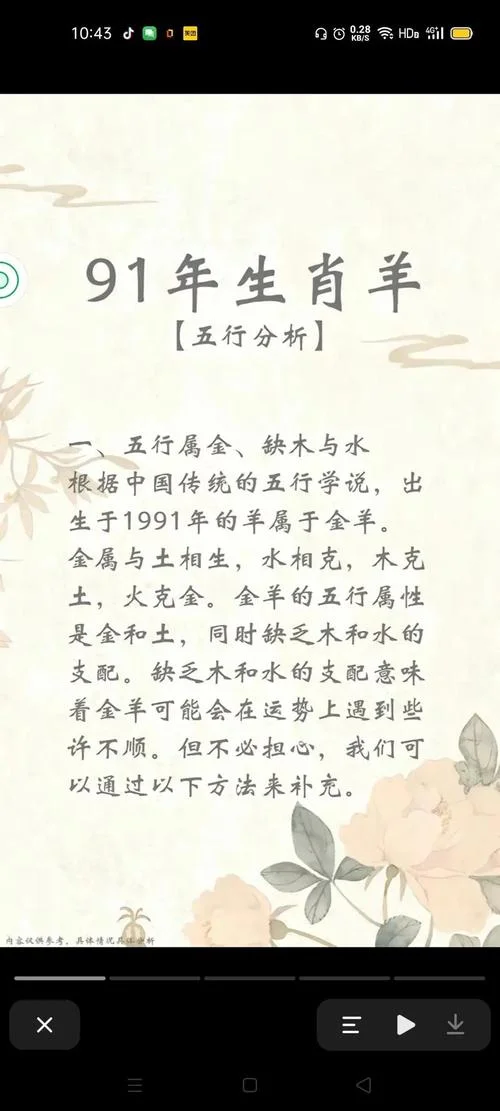 10:43
美团
0.28
KB/S
HD
4G
91年生肖羊
【五行分析】
一、五行属金、缺木与水
根据中国传统的五行学说，出
生于1991年的羊属于金羊。
金属与土相生，水相克，木克
土，火克金。金羊的五行属性
是金和土，同时缺乏木和水的
支配。缺乏木和水的支配意味
着金羊可能会在运势上遇到些
许不顺。但不必担心，我们可
以通过以下方法来补充。
内容仅供参考，具体情况具体分析